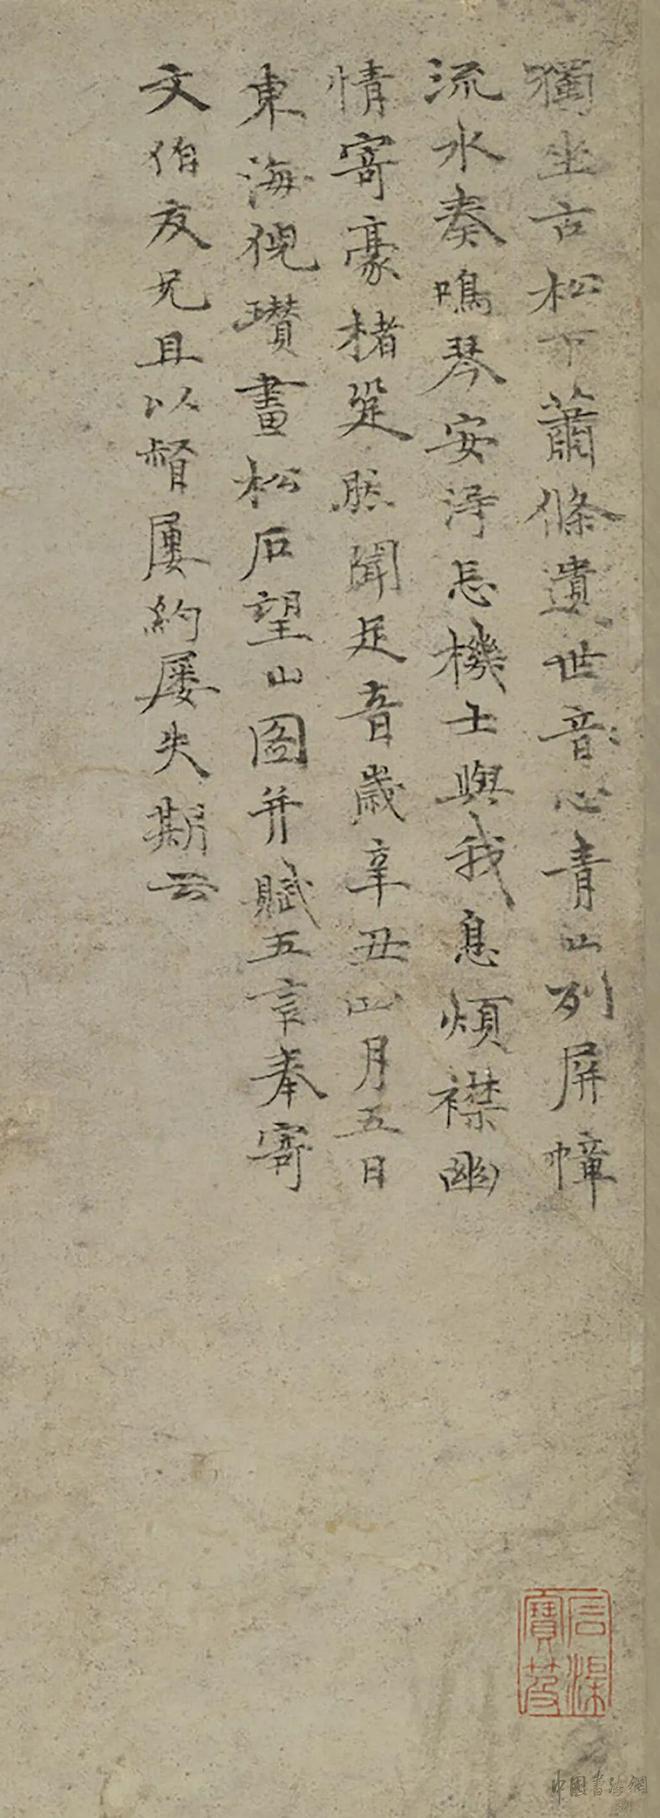 獨坐古松下蕭條遺世音心青山列屏幛
流水奏鳴琴安淂忘機士與我息煩襟幽
情寄豪楮跫然聞足音歲辛丑山月五日
東海倪瓚畫松石望山圖并賦五言奉寄
文伯友兄且以督屢約屢失期云
信
寶
中國書法網